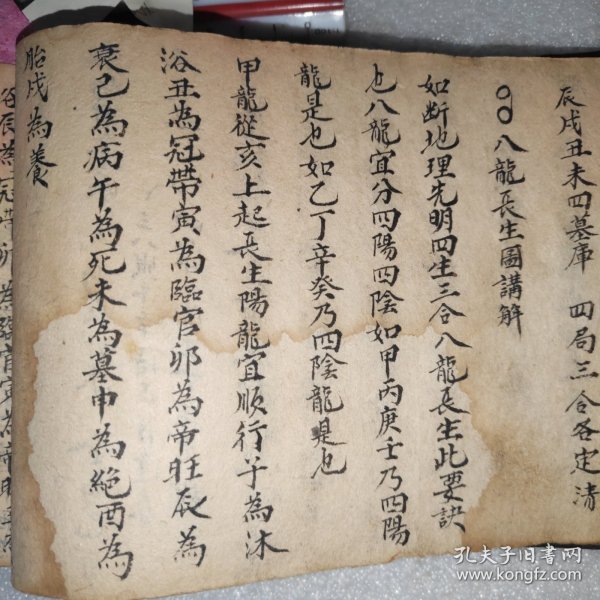 辰戌丑未四墓庫 四局三合各定清
八龍長生圖講解
如断地理先明四生三合八龍長生此要訣
也八龍宜分四陽四陰如甲丙庚壬乃四陽
龍是也如乙丁辛癸乃四陰龍是也
甲龍從亥上起長生陽龍宜順行子為沐
浴丑為冠帶寅為臨官卯為帝旺辰為
衰己為病午為死未為墓申為絕酉為
胎戌為養
孔夫子旧书网
www.kongfz.com